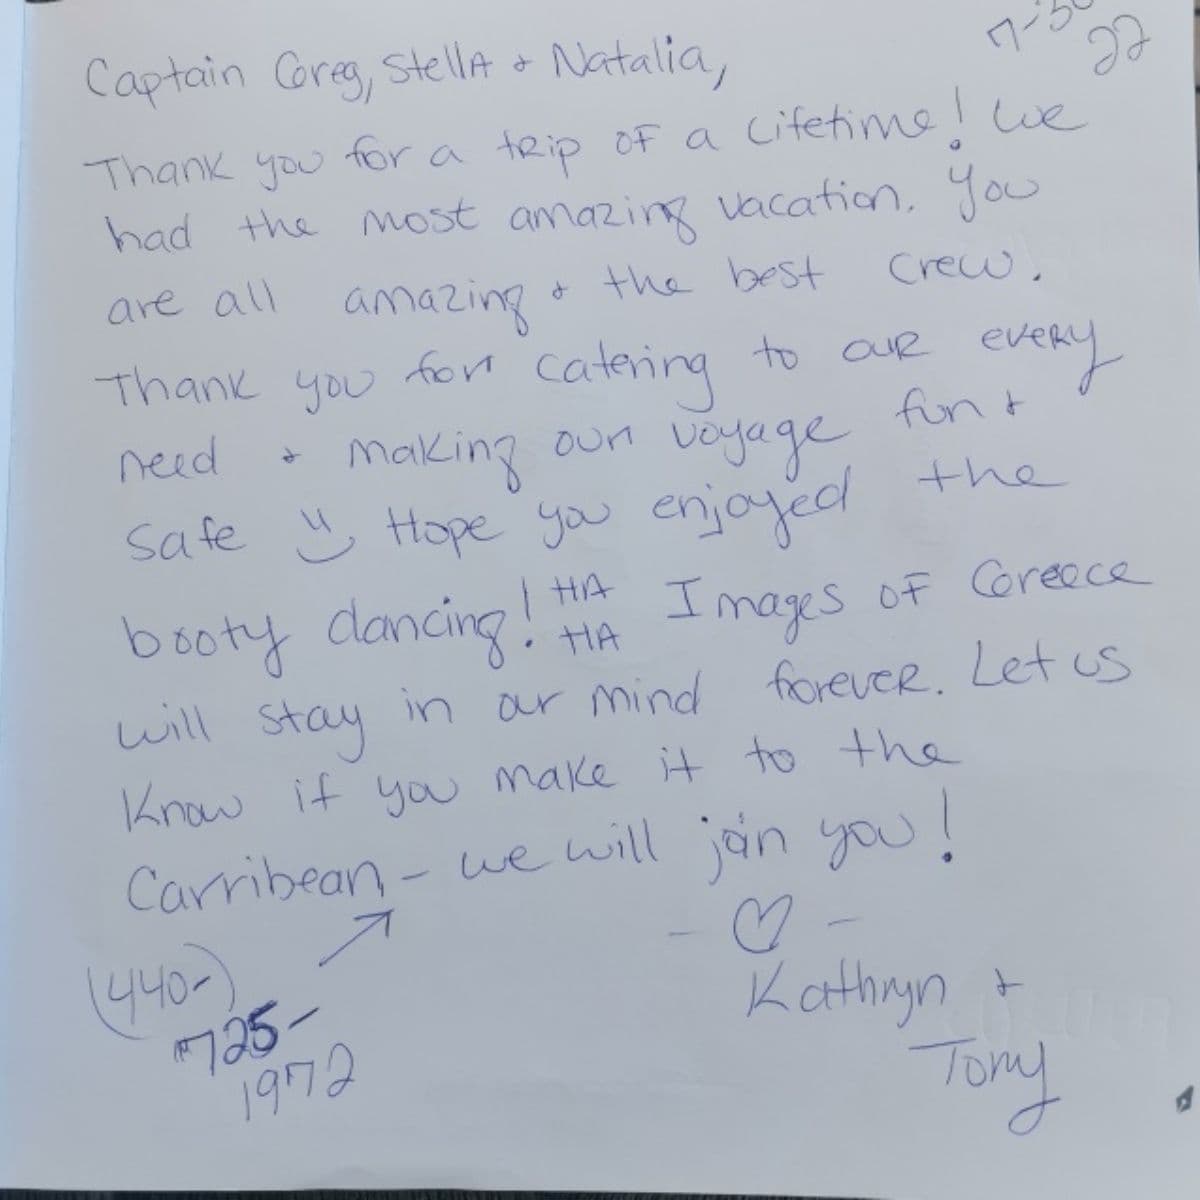 7-30
22
Captain Greg, Stella & Natalia,
Thank you for a trip of a Lifetime! We
had the most amazing vacation. You
are all amazing & the best crew.
Thank you for catering to our every
need & making our voyage fun &
safe Hope you enjoyed the
booty dancing! HA HA Images of Greece
will stay in our mind forever. Let us
know if you make it to the
Carribean - we will join you!
- ♡ -
Kathryn &
Tony
(440-)
725-
1972